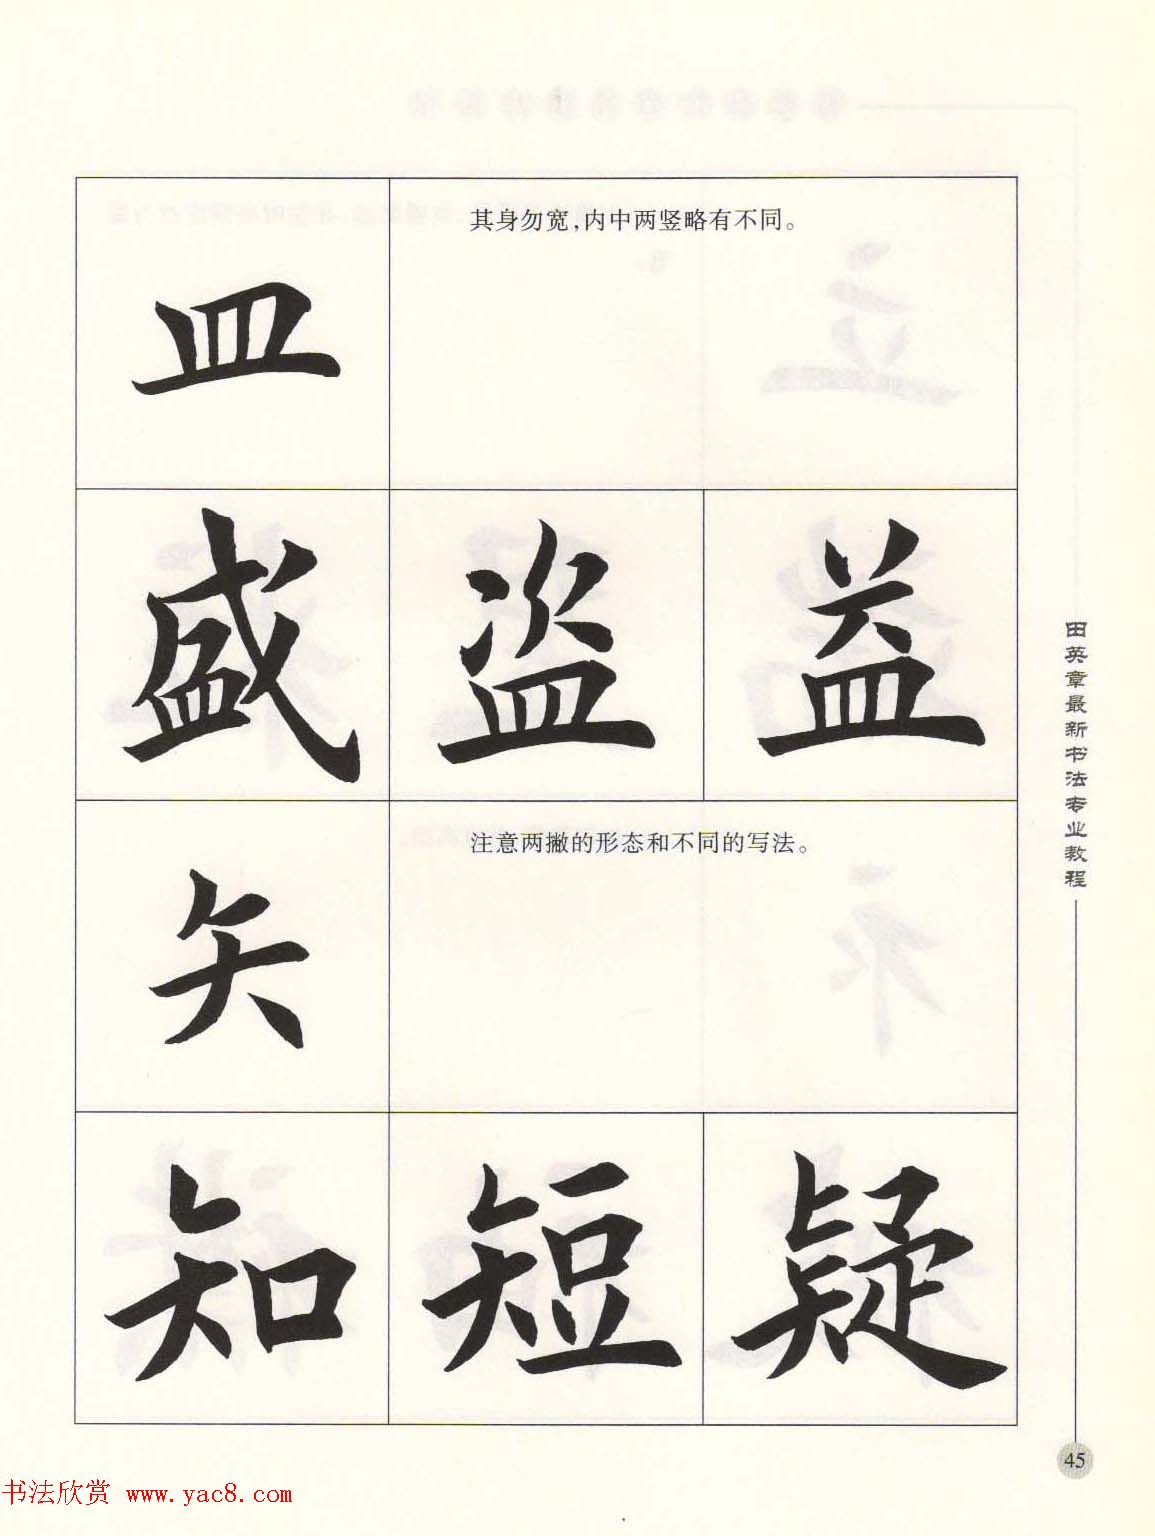 皿
其身勿宽，内中两竖略有不同。
盛 盗 益
矢
注意两撇的形态和不同的写法。
知 短 疑
田英章最新书法专业教程
45
书法欣赏 www.yac8.com